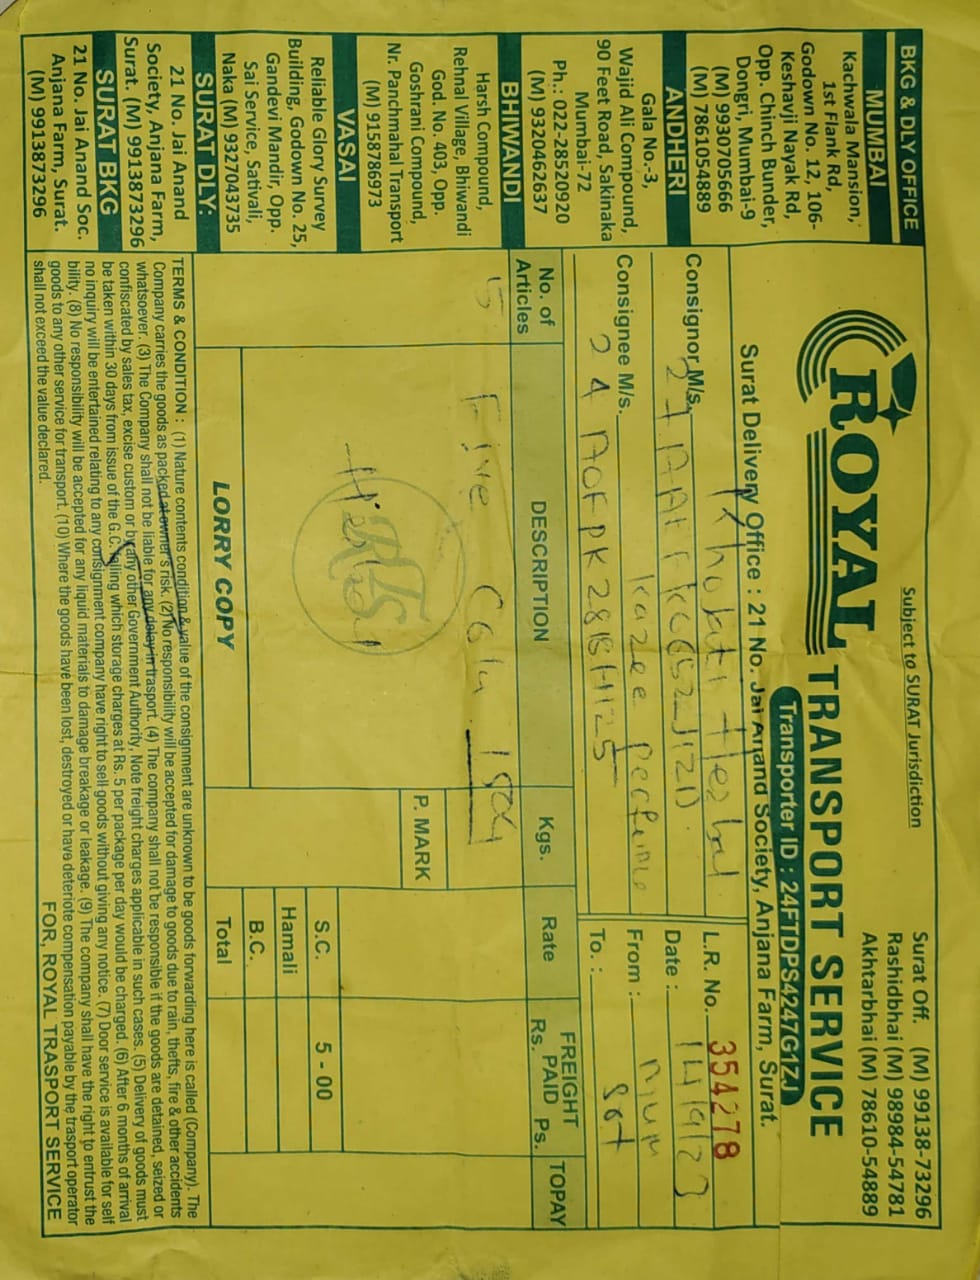 Subject to SURAT Jurisdiction
Surat Off. (M) 99138-73296
Rashidbhai (M) 98984-54781
Akhtarbhai (M) 78610-54889
ROYAL TRANSPORT SERVICE
Transporter ID : 24FTDPS4247G1ZJ
Surat Delivery Office : 21 No. Jai Anand Society, Anjana Farm, Surat.
BKG & DLY OFFICE
MUMBAI
Kachwala Mansion,
1st Flank Rd,
Godown No. 12, 106-
Keshavji Nayak Rd,
Opp. Chinch Bunder,
Dongri, Mumbai-9
(M) 9930705666
(M) 7861054889
ANDHERI
Gala No.-3,
Wajid Ali Compound,
90 Feet Road, Sakinaka
Mumbai-72
Ph.: 022-28520920
(M) 9320462637
BHIWANDI
Harsh Compound,
Rehnal Village, Bhiwandi
God. No. 403, Opp.
Goshrani Compound,
Nr. Panchmahal Transport
(M) 9158786973
VASAI
Reliable Glory Survey
Building, Godown No. 25,
Gandevi Mandir, Opp.
Sai Service, Sativali,
Naka (M) 9327043735
SURAT DLY:
21 No. Jai Anand
Society, Anjana Farm,
Surat. (M) 9913873296
SURAT BKG
21 No. Jai Anand Soc.
Anjana Farm, Surat.
(M) 9913873296
Consignor M/s.
Consignee M/s. Kazee
L.R. No. 354278
Date : 14/9/23
From : Mum
To. : Sat
No. of Articles
DESCRIPTION
Kgs.
Rate
FREIGHT
PAID
Rs. Ps.
TOPAY
Five
P. MARK
S.C. 5 - 00
Hamali
B.C.
Total
RTS
LORRY COPY
TERMS & CONDITION : (1) Nature contents condition & value of the consignment are unknown to be goods forwarding here is called (Company). The
Company carries the goods as packed at owner's risk. (2) No responsibility will be accepted for damage to goods due to rain, thefts, fire & other accidents
whatsoever. (3) The Company shall not be liable for any delay in trasport. (4) The company shall not be responsible if the goods are detained, seized or
confiscated by sales tax, excise custom or by any other Government Authority, Note freight charges applicable in such cases. (5) Delivery of goods must
be taken within 30 days from issue of the G.C. failing which storage charges at Rs. 5 per package per day would be charged. (6) After 6 months of arrival
no inquiry will be entertained relating to any consignment company have right to sell goods without giving any notice. (7) Door service is available for self
bility. (8) No responsibility will be accepted for any liquid materials to damage breakage or leakage. (9) The company shall have the right to entrust the
goods to any other service for transport. (10) Where the goods have been lost, destroyed or have deteriote compensation payable by the trasport operator
shall not exceed the value declared.
FOR, ROYAL TRASPORT SERVICE